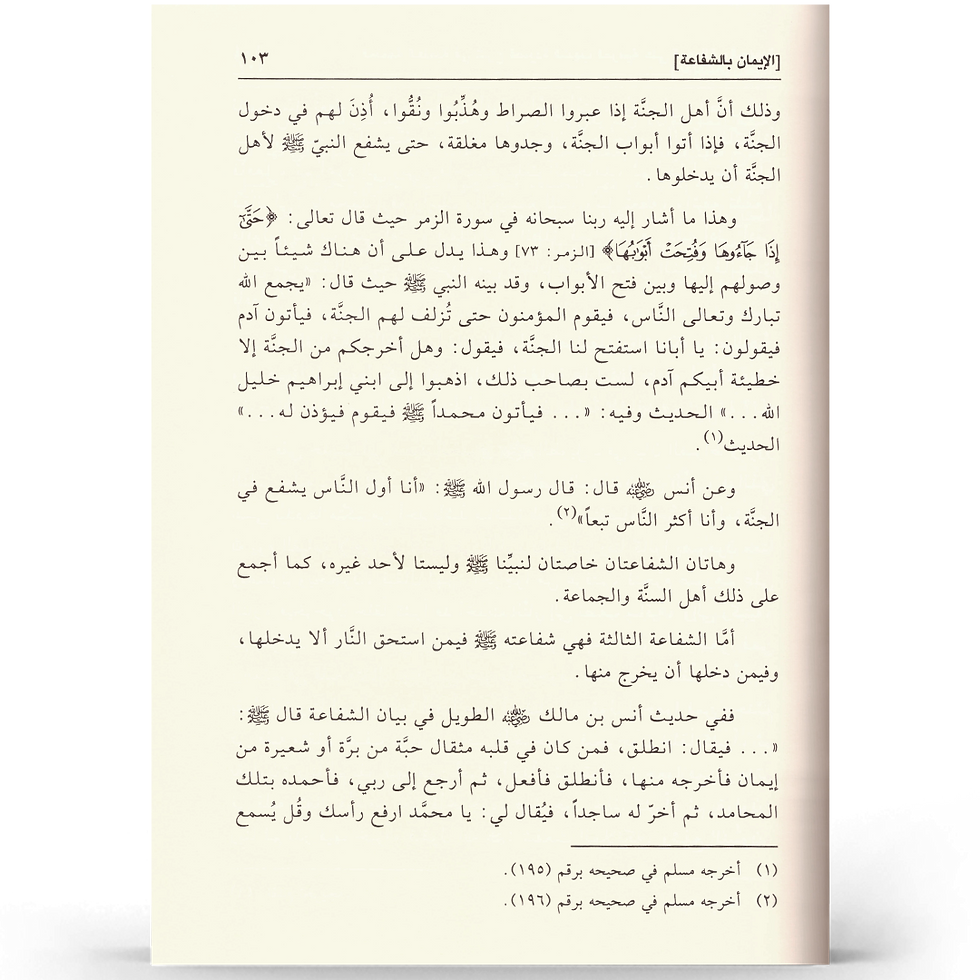 [الإيمان بالشفاعة] ١٠٣
وذلك أنَّ أهل الجنَّة إذا عبروا الصراط وهُذِّبُوا ونُقُّوا، أُذِنَ لهم في دخول
الجنَّة، فإذا أتوا أبواب الجنَّة، وجدوها مغلقة، حتى يشفع النبيّ ﷺ لأهل
الجنَّة أن يدخلوها.
وهذا ما أشار إليه ربنا سبحانه في سورة الزمر حيث قال تعالى: ﴿حَتَّىٰٓ
إِذَا جَآءُوهَا وَفُتِحَتْ أَبْوَٰبُهَا﴾ [الزمر: ٧٣] وهذا يدل على أن هناك شيئاً بين
وصولهم إليها وبين فتح الأبواب، وقد بينه النبي ﷺ حيث قال: «يجمع الله
تبارك وتعالى النَّاس، فيقوم المؤمنون حتى تُزلف لهم الجنَّة، فيأتون آدم
فيقولون: يا أبانا استفتح لنا الجنَّة، فيقول: وهل أخرجكم من الجنَّة إلا
خطيئة أبيكم آدم، لست بصاحب ذلك، اذهبوا إلى ابني إبراهيم خليل
الله...» الحديث وفيه: «... فيأتون محمداً ﷺ فيقوم فيؤذن له...»
الحديث(١).
وعن أنس رضي الله عنه قال: قال رسول الله ﷺ: «أنا أول النَّاس يشفع في
الجنَّة، وأنا أكثر النَّاس تبعاً»(٢).
وهاتان الشفاعتان خاصتان لنبيِّنا ﷺ وليستا لأحد غيره، كما أجمع
على ذلك أهل السنَّة والجماعة.
أمَّا الشفاعة الثالثة فهي شفاعته ﷺ فيمن استحق النَّار ألا يدخلها،
وفيمن دخلها أن يخرج منها.
ففي حديث أنس بن مالك رضي الله عنه الطويل في بيان الشفاعة قال ﷺ:
«... فيقال: انطلق، فمن كان في قلبه مثقال حبَّة من برَّة أو شعيرة من
إيمان فأخرجه منها، فأنطلق فأفعل، ثم أرجع إلى ربي، فأحمده بتلك
المحامد، ثم أخرّ له ساجداً، فيُقال لي: يا محمَّد ارفع رأسك وقُل يُسمع
(١) أخرجه مسلم في صحيحه برقم (١٩٥).
(٢) أخرجه مسلم في صحيحه برقم (١٩٦).